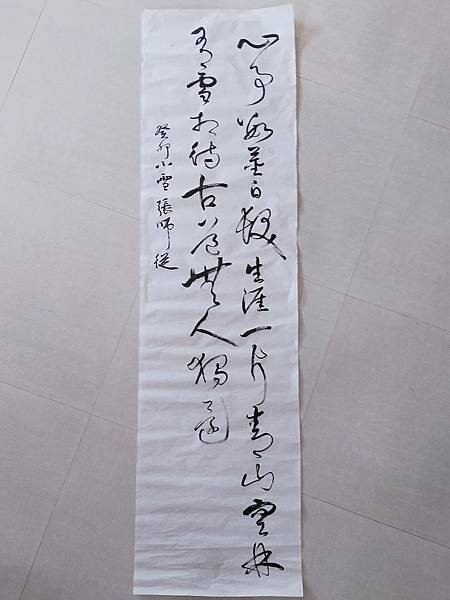 心事數莖白髮生涯一片青山空林
有雪相待古道無人獨還
癸卯小雪張師從